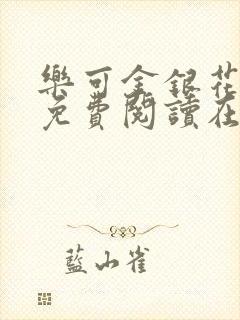 樂可金銀花
免費閱讀在
藍小雀